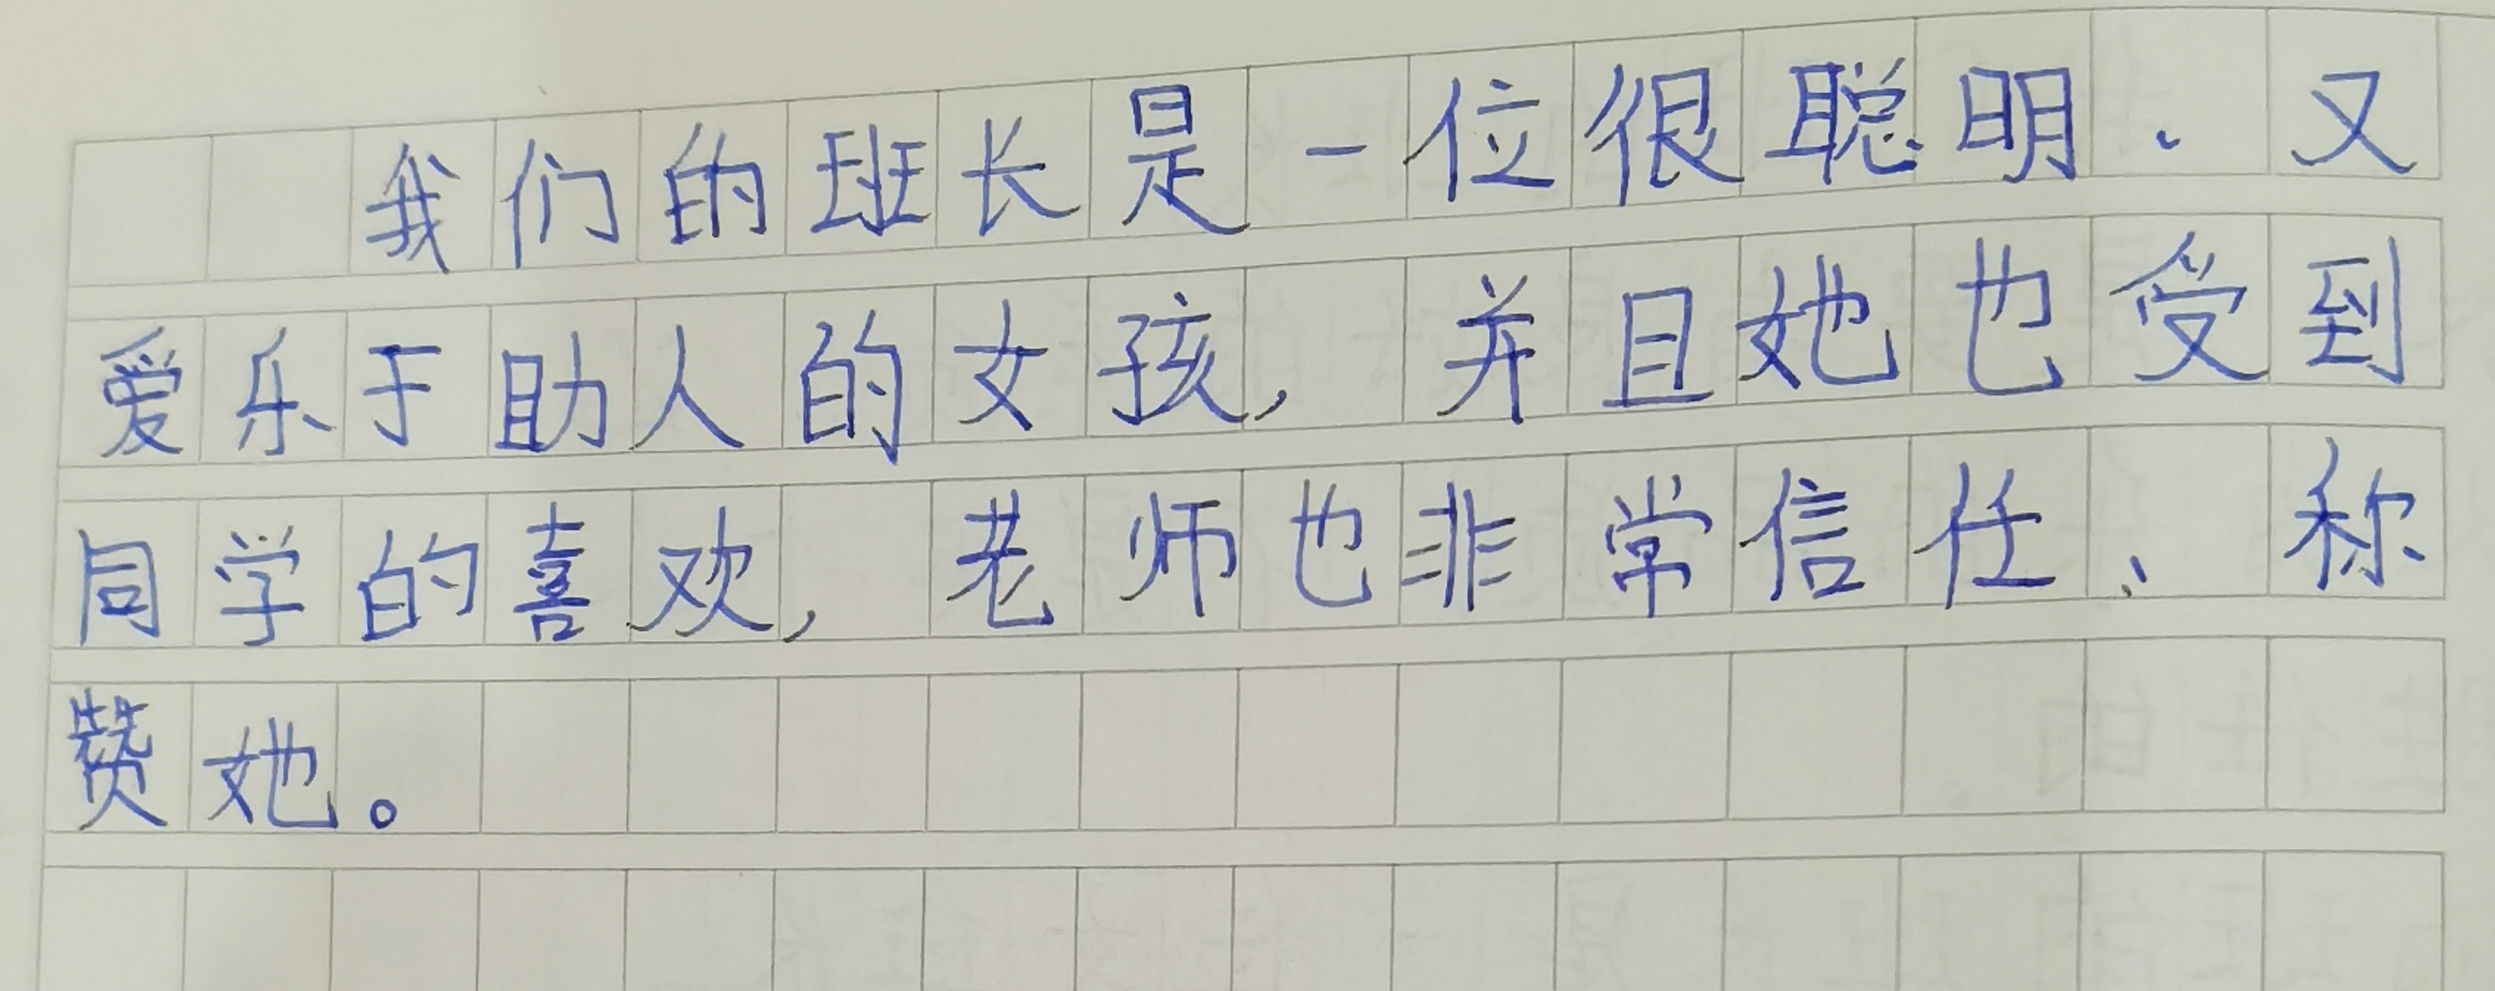 我们的班长是一位很聪明、又
爱乐于助人的女孩，并且她也受到
同学的喜欢，老师也非常信任、称
赞她。